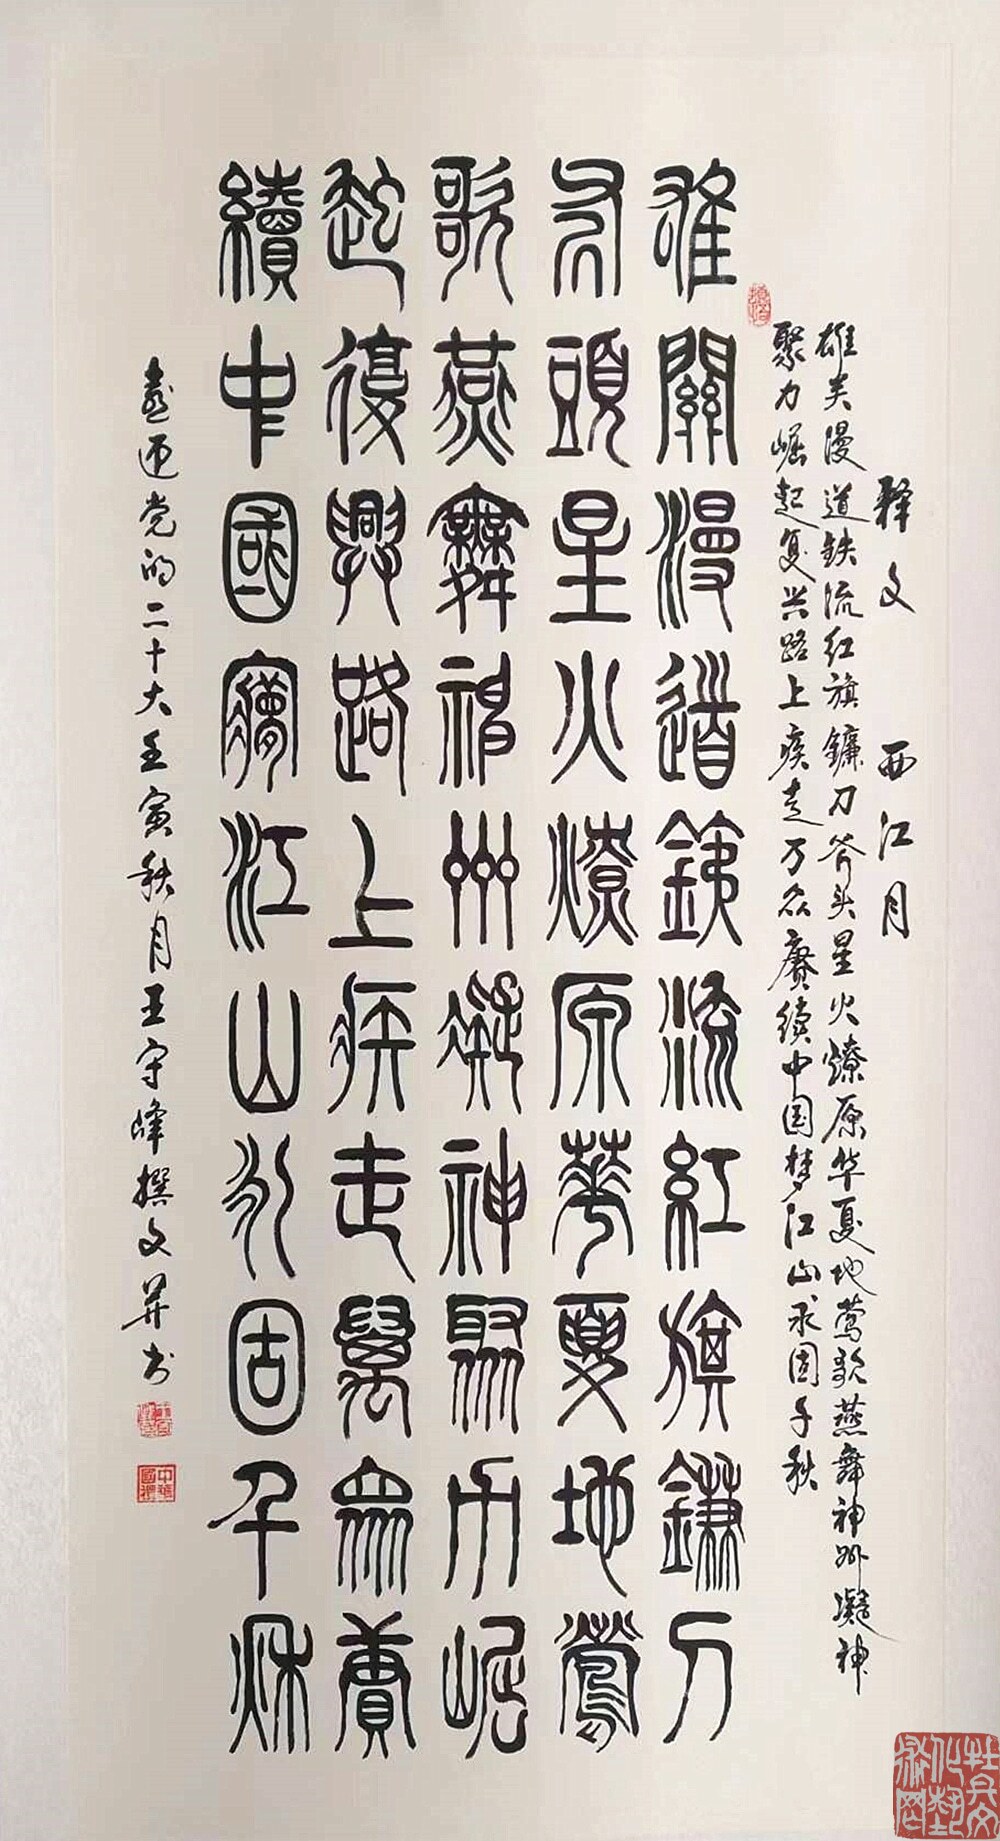 释文 西江月
雄关漫道铁流红旗镰刀斧头星火燎原华夏地莺歌燕舞神州凝神
聚力崛起复兴路上疾走万众赓续中国梦江山永固千秋
雄關漫道鐵流紅旗鐮刀
斧頭星火燎原華夏地鶯
歌燕舞神州凝神聚力崛
起復興路上疾走萬眾賡
續中國夢江山永固千秋
喜迎党的二十大壬寅秋月王守峰撰文并书